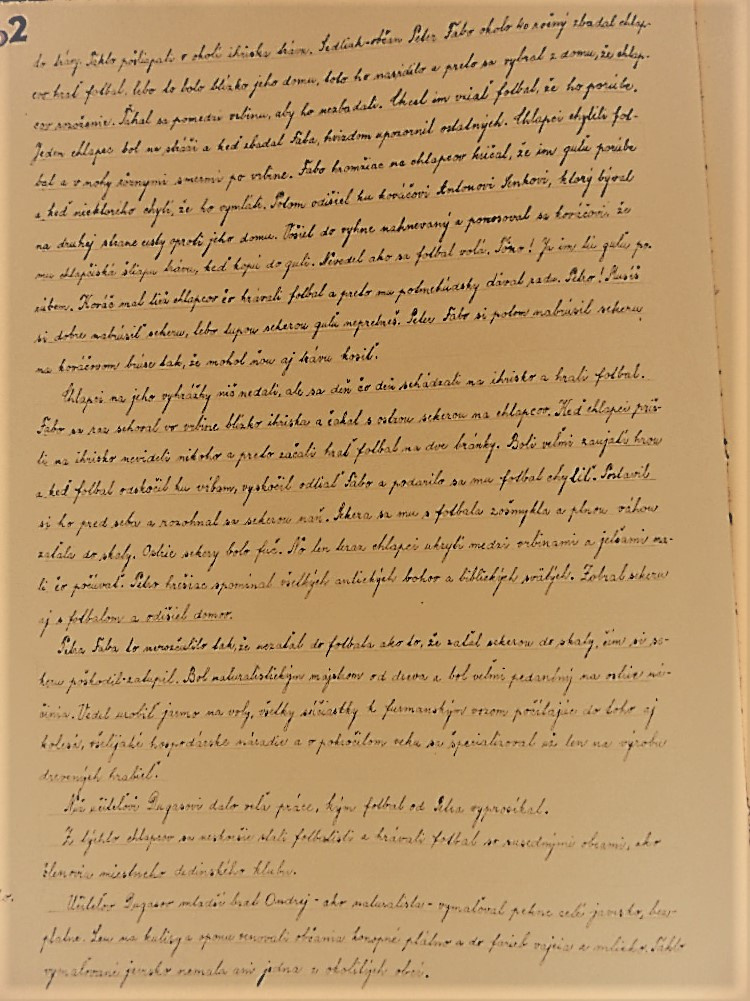 62
do brány. Takto pošliapali v okolí ihriska trávu. Sedliak-občan Peter Fabo okolo 40 ročný zbadal chlap-
cov hrať fotbal, lebo to bolo blízko jeho domu, toto ho nasrdilo a preto sa vybral z domu, že chlap-
cov. Ťahal sa pomedzi vrbinu, aby ho nezbadali. Chcel im vziať fotbal, že ho porúbe.
Jeden chlapec bol na stráži a keď zbadal Faba, hvizdom upozornil ostatných. Chlapci chytili fot-
bal a v nohy rôznymi smermi po vrbine. Fabo hromžiac na chlapcov kričal, že im guľu porúbe
a keď niektorého chytí, že ho vymláti. Potom odišiel ku kováčovi Antonovi Senkovi, ktorý býval
na druhej strane cesty oproti jeho domu. Vošiel do vyhne nahnevaný a ponosoval sa kováčovi, že
mu chlapčiská šliapu trávu, keď kopú do guli. Nevedel ako sa fotbal volá. Tóno! Ja im tú guľu po-
rúbem. Kováč mal tiež chlapcov čo hrávali fotbal a preto mu potmehúdsky dával radu. Petro! Musíš
si dobre nabrúsiť sekeru, lebo tupou sekerou guľu nepretneš. Peter Fabo si potom nabrúsil sekeru
na kováčovom brúse tak, že mohol ňou aj trávu kosiť.
Chlapci na jeho vyhrážky nič nedali, ale sa deň čo deň schádzali na ihrisko a hrali fotbal.
Fabo sa raz schoval vo vrbine blízko ihriska a čakal s ostrou sekerou na chlapcov. Keď chlapci priš-
li na ihrisko nevideli nikoho a preto začali hrať fotbal na dve bránky. Boli veľmi zaujatí hrou
a keď fotbal odskočil ku vŕbam, vyskočil odtiaľ Fabo a podarilo sa mu fotbal chytiť. Postavil
si ho pred seba a rozohnal sa sekerou naň. Sekera sa mu s fotbala zošmykla a plnou váhou
zaťala do skaly. Ostrie sekery bolo fuč. No len teraz chlapci ukrytí medzi vrbinami a jelšami ma-
li čo počúvať. Petro hrešiac spomínal všetkých antických bohov a biblických svätých. Zobral sekeru
aj s fotbalom a odišiel domov.
Petra Faba to nerozčúlilo tak, že nezaťal do fotbala ako to, že zaťal sekerou do skaly, čím si se-
keru poškodil-zatupil. Bol naturalistickým majstrom od dreva a bol veľmi pedantný na ostrie ná-
činia. Vedel urobiť jarmo na voly, všetky súčiastky k furmanským vozom počítajúc do toho aj
kolesá, všelijaké hospodárske náradie a v pokročilom veku sa špecializoval už len na výrobu
drevených hrablí.
učiteľovi Dugasovi dalo veľa práce, kým fotbal od Petra vyprosíkal.
Z týchto chlapcov sa neskoršie stali fotbalisti a hrávali fotbal so susednými obcami, ako
členovia miestneho dedinského klubu.
Učiteľov Dugasov mladší brat Ondrej - ako naturalista - vymaľoval pekne celé javisko, bez-
platne. Len na kulisy a oponu venovali občania konopné plátno a do farieb vajcia a mlieko. Takto
vymaľované javisko nemala ani jedna z okolitých obcí.